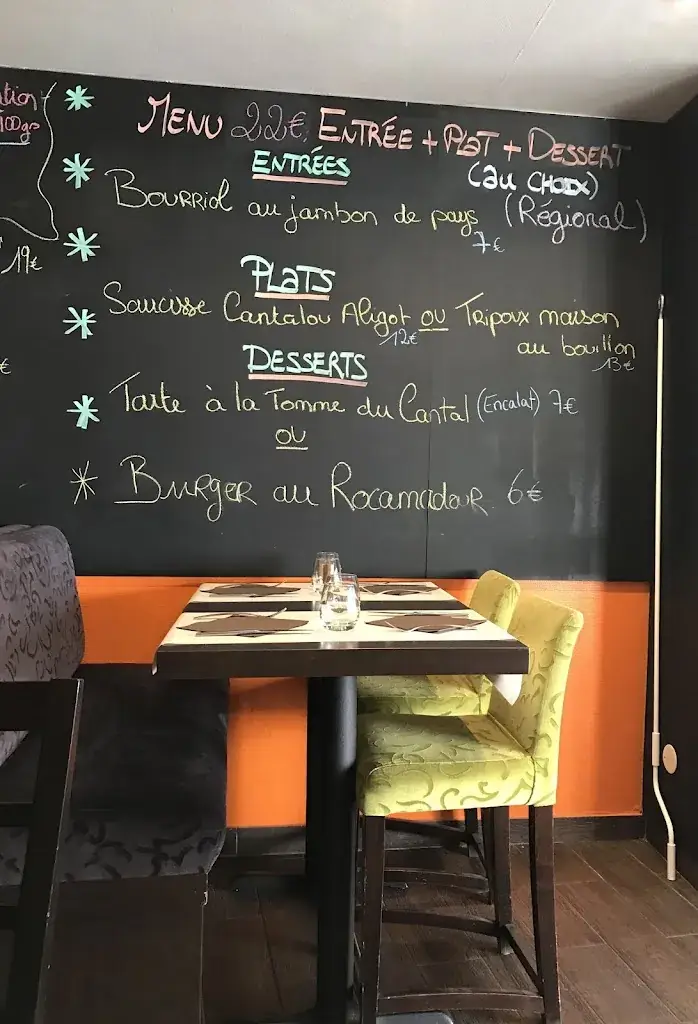 100grs
19€
€
MENU 22€, ENTRÉE + PLAT + DESSERT
(au CHOIX)
ENTRÉES
Bourriol au jambon de pays (Régional)
7€
PLATS
Saucisse Cantalou Aligot ou Tripoux maison
12€
au bouillon
13€
DESSERTS
Tarte à la Tomme du Cantal (Encalat) 7€
OU
BURGER au Rocamadour 6€